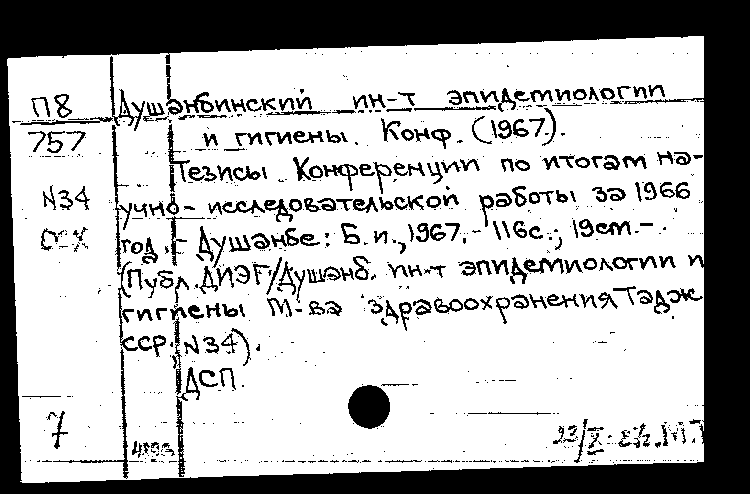 П8
757
N34
Душанбинский ин-т эпидемиологии
и гигиены. Конф. (1967).
Тезисы Конференции по итогам на-
учно-исследовательской работы за 1966
год. - Душанбе: Б.и., 1967. - 116с.; 19см. -.
(Публ. ДИЭГ/Душанб. ин-т эпидемиологии и
гигиены М-ва здравоохранения Тадж
ССР; N34).
ДСП.
7